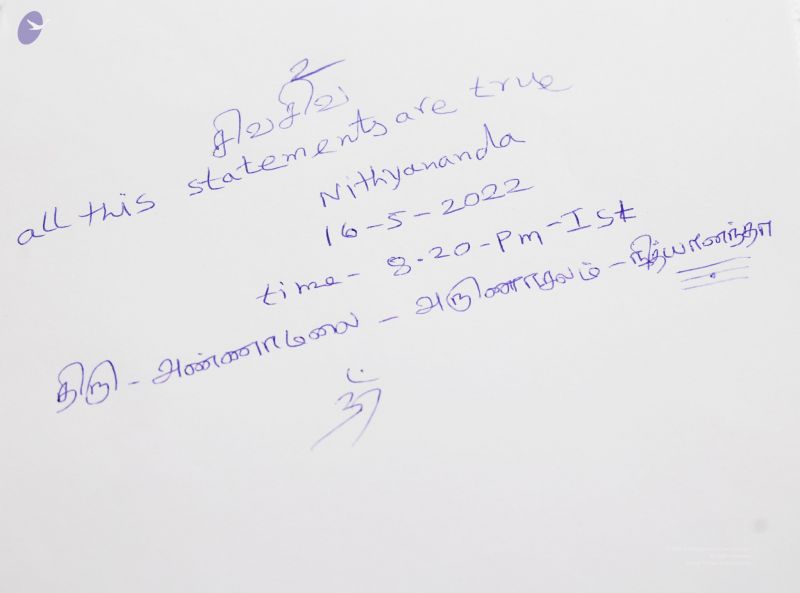 உ
சிவ சிவ
all this statements are true
Nithyananda
16-5-2022
time - 8.20-Pm-Ist
திரு - அண்ணாமலை - அருணாசலம் - நித்யானந்தா